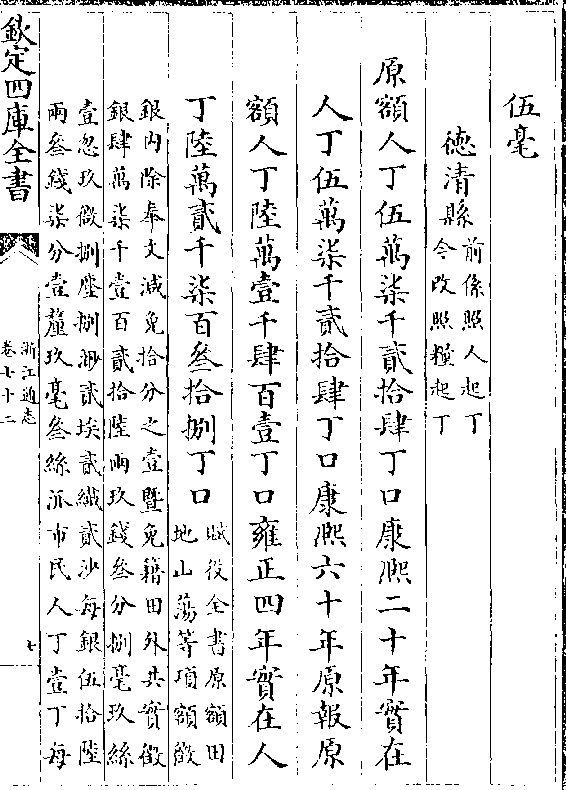 伍毫
德清縣前係照人起丁
今改照糧起丁
原額人丁伍萬柒千貳拾肆丁口康熙二十年實在
人丁伍萬柒千貳拾肆丁口康熙六十年原報原
額人丁陸萬壹千肆百壹丁口雍正四年實在人
丁陸萬貳千柒百叁拾捌丁口賦役全書原額田
地山蕩等項額徴
銀内除奉文減免拾分之壹暨免籍田外共實徴
銀肆萬柒千壹百貳拾陸兩玖錢叁分捌毫玖絲
壹忽玖微捌塵捌渺貳埃貳纖貳沙每銀伍拾陸
兩叁錢柒分壹釐玖毫叁絲派市民人丁壹丁每
欽定四庫全書
浙江通志
卷七十二
七